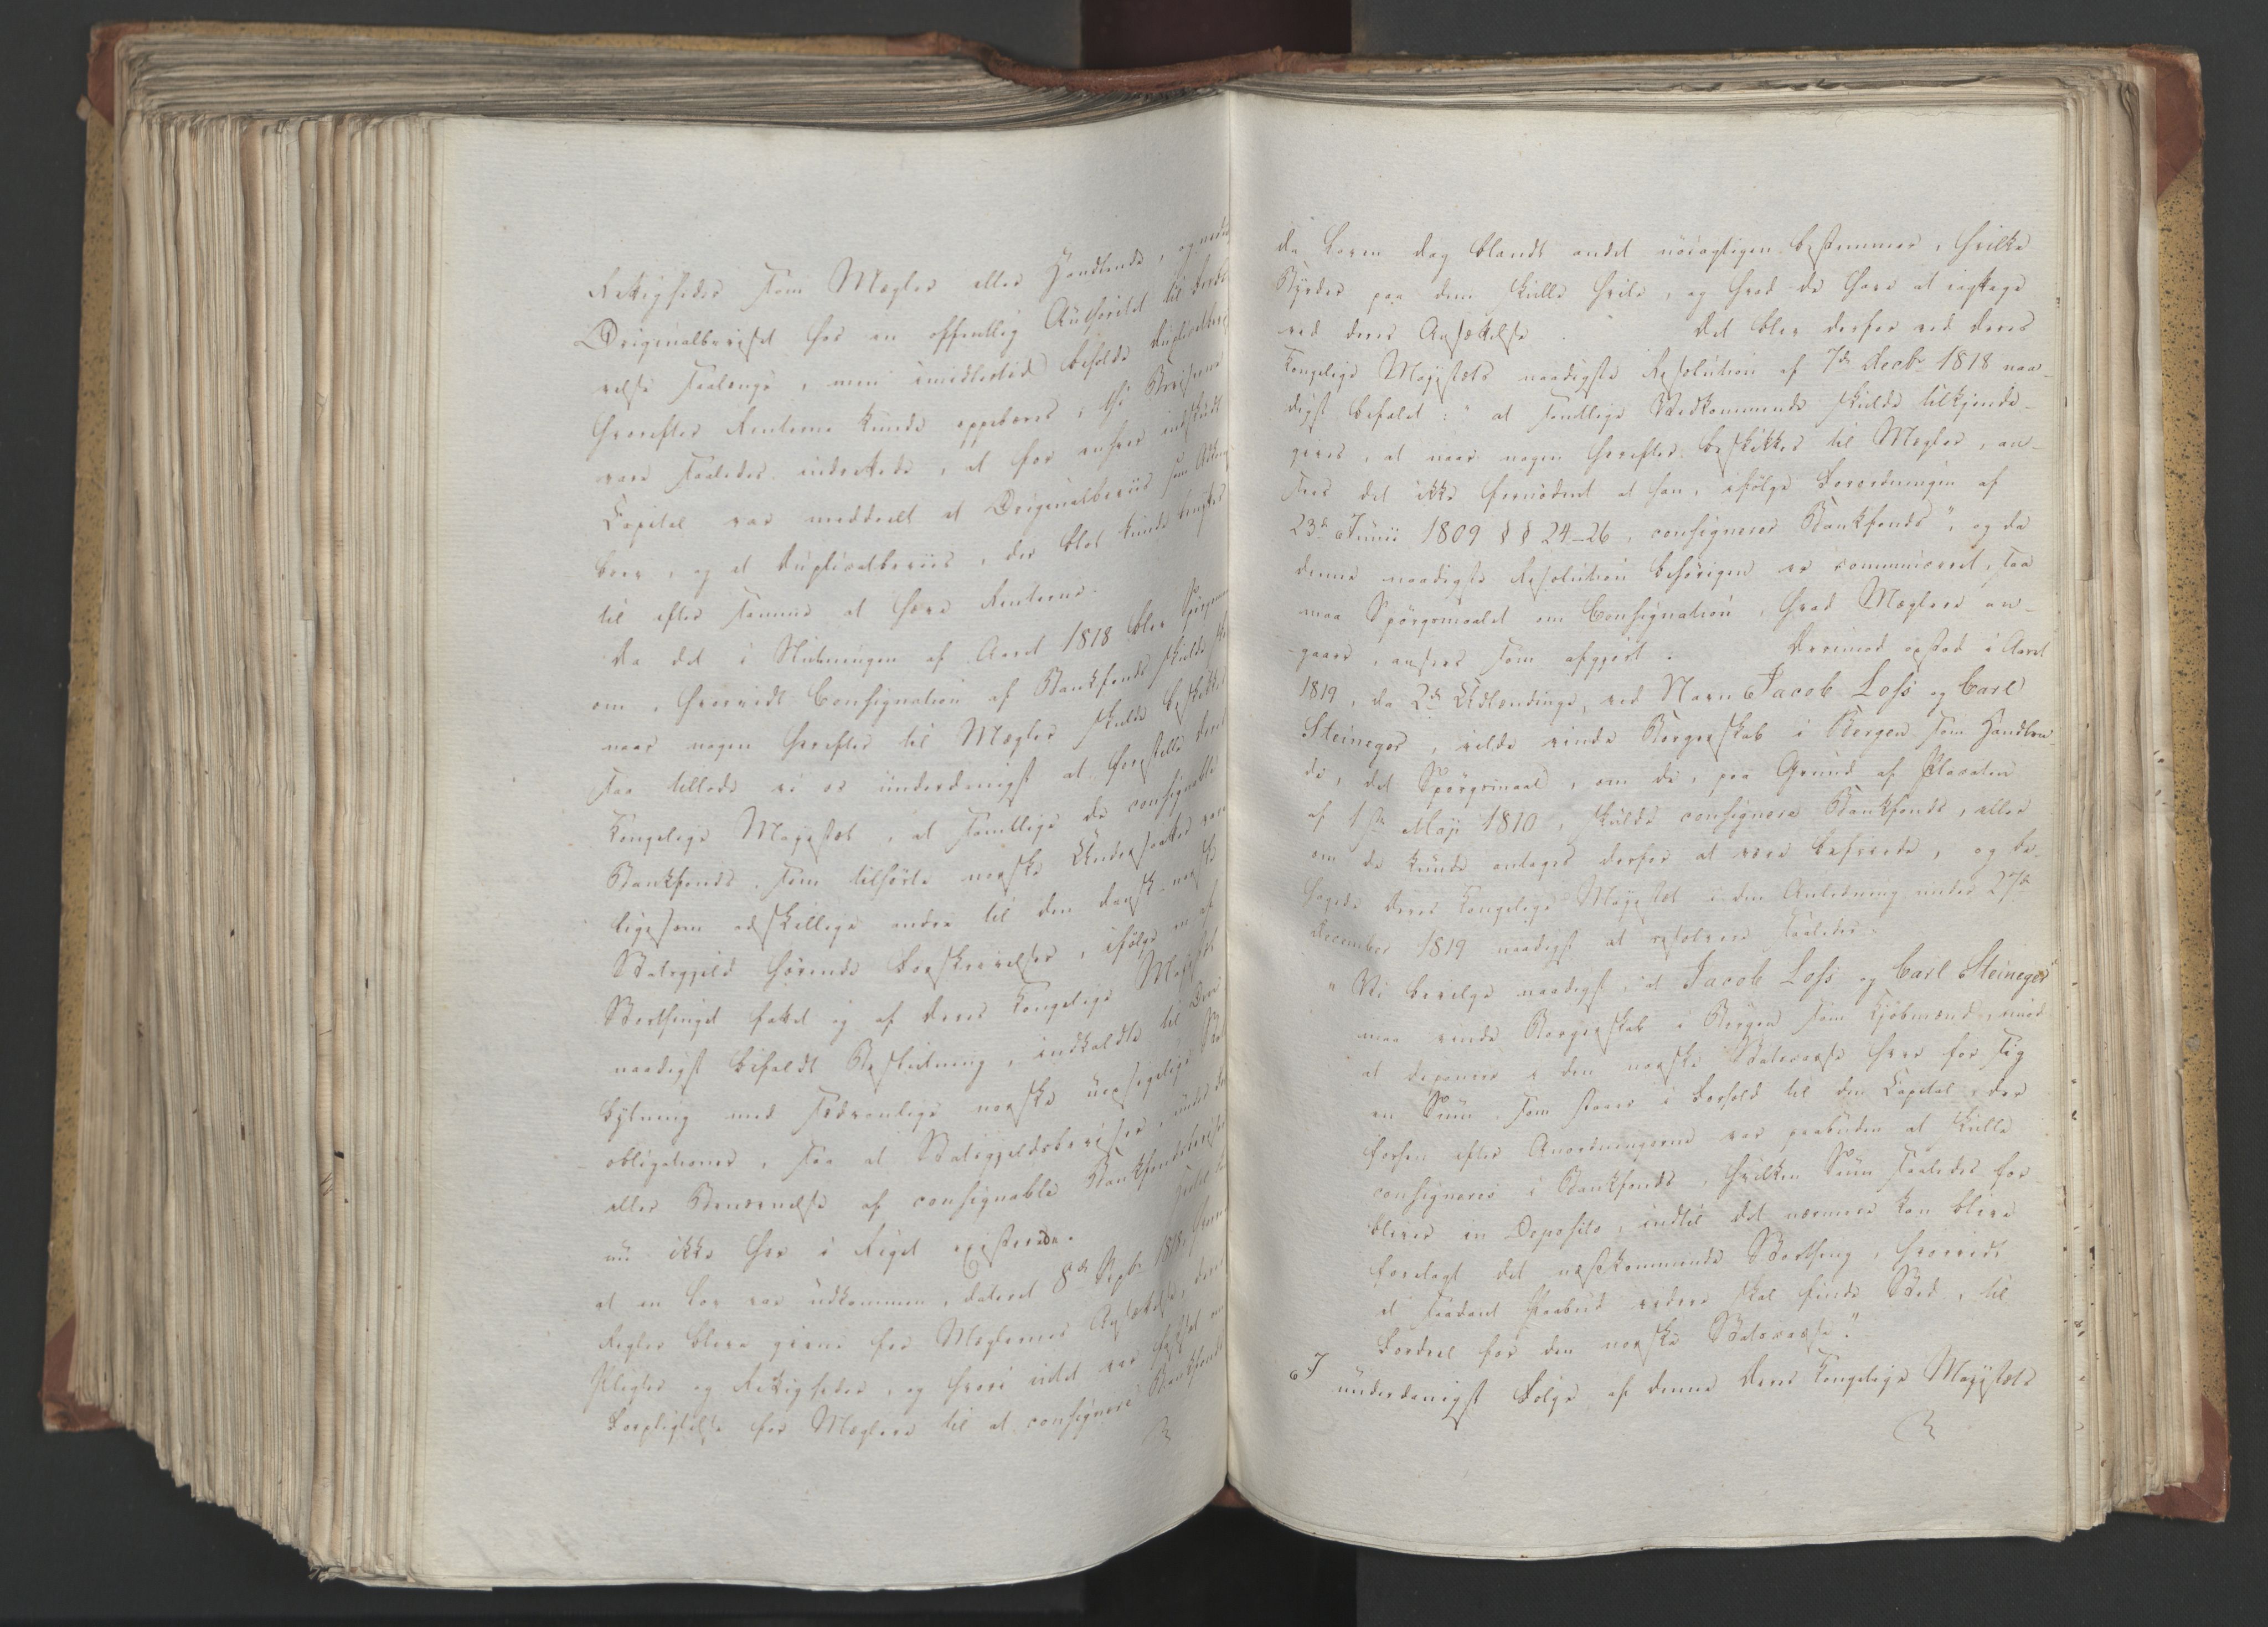 Rettigheder som Mægler eller Handlende, og nedl
Originalbeviset hos en offentlig Authoritet til Forva
relse saalænge, men imidlertid beholde duplicatbevi
hvorefter Renterne kunde oppebæres, thi Beviserne
vare saaledes indrettede, at for enhver indskudt
Capital var meddeelt et Originalbeviis som Adkomst
brev, og et Duplicatbeviis, der blot kunde benyttes
til efter samme at hæve Renterne.
Da det i Slutningen af Aaret 1818 blev Spørgsmaal
om, hvorvidt Consignation af Bankfonds skulde skee
naar nogen herefter til Mægler skulde beskikkes
saa tillode vi os underdanigst at forestille Deres
Kongelige Majestæt, at samtlige de consignable
Bankfonds, som tilhørte norske Undersaatter vare
ligesom adskillige andre til den dansk-norske
Statsgjeld hørende Forskrivelser, ifølge en af
Storthinget fattet og af Deres Kongelige Majestæt
naadigst bifaldt Beslutning, indkaldte til Om
bytning med sædvanlige norske uopsigelige Stats
obligationer, saa at Statsgjeldsbeviser, under det
eller Benævnelse af consignable Bankfondsbeviser
nu ikke her i Riget existerede.
at en Lov var udkommen, dateret 8de Septbr 1818, hvor
Regler bleve givne for Mæglernes Ansættelse, deres
Pligter og Rettigheder, og hvori intet var fastsat om
Forpligtelse for Mæglere til at consignere Bankfonds
da Loven dog blandt andet nøiagtigen bestemmer, hvilke
Byrder paa dem skulle hvile, og hvad de have at iagttage
ved deres Ansættelse. Det blev derfor ved Deres
Kongelige Majestæts naadigste Resolution af 7de Decbr 1818 naa-
digst befalet: "at samtlige Vedkommende skulde tilkjende-
gives, at naar nogen herefter beskikkes til Mægler, an-
sees det ikke fornødent at han, ifølge Forordningen af
23de Junii 1809 §§ 24-26, consignerer Bankfonds", og da
denne naadigste Resolution behørigen er communiceret, saa
maa Spørgsmaalet om Consignation, hvad Mæglere an-
gaaer, ansees som afgjort. Derimod opstod i Aaret
1819, da 2de Udlændinge, ved Navn Jacob Loss og Carl
Steineger, vilde vinde Borgerskab i Bergen som Handlen-
de, det Spørgsmaal, om de, paa Grund af Placaten
af 1ste Maji 1810, skulde consignere Bankfonds, eller
om de kunde antages derfor at være befriede, og be-
hagede Deres Kongelige Majestæt i den Anledning under 27de
December 1819 naadigst at resolvere saaledes:
"Vi bevilge naadigst, at Jacob Loss og Carl Steineger
maa vinde Borgerskab i Bergen som Kjøbmænd, imod
at deponere i den norske Statscasse hver for sig
en Sum, som staaer i Forhold til den Capital, der
forhen efter Anordningerne var paabuden at skulle
consigneres i Bankfonds, hvilken Sum saaledes for-
bliver in Deposito, indtil det nærmere kan blive
forelagt det næstkommende Storthing, hvorvidt
et saadant Paabud videre skal finde Sted, til
Fordeel for den norske Statscasse."
I underdanigst Følge af denne Deres Kongelige Majestæts